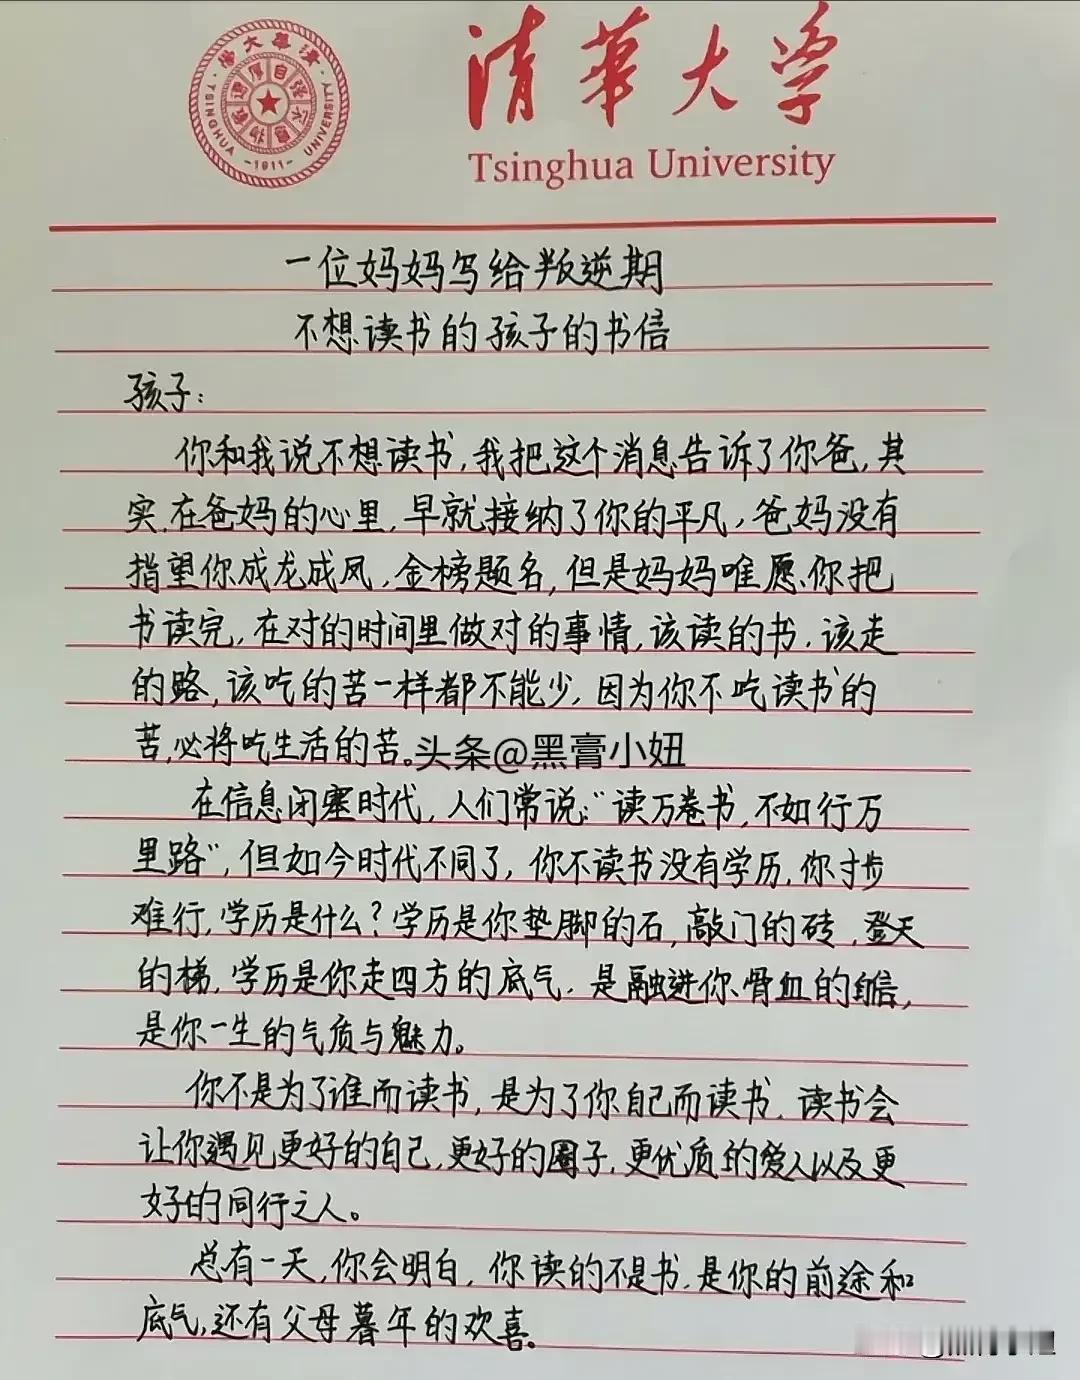 清華大学
Tsinghua University
TSINGHUA UNIVERSITY
-1911-
一位妈妈写给叛逆期
不想读书的孩子的书信
孩子：
你和我说不想读书，我把这个消息告诉了你爸，其
实，在爸妈的心里，早就接纳了你的平凡，爸妈没有
指望你成龙成凤，金榜题名，但是妈妈唯愿你把
书读完，在对的时间里做对的事情，该读的书，该走
的路，该吃的苦一样都不能少，因为你不吃读书的
苦，必将吃生活的苦。头条@黑膏小妞
在信息闭塞时代，人们常说：“读万卷书，不如行万
里路”，但如今时代不同了，你不读书没有学历，你寸步
难行，学历是什么？学历是你垫脚的石，敲门的砖，登天
的梯，学历是你走四方的底气，是融进你骨血的自信，
是你一生的气质与魅力。
你不是为了谁而读书，是为了你自己而读书，读书会
让你遇见更好的自己，更好的圈子，更优质的爱人以及更
好的同行之人。
总有一天，你会明白，你读的不是书，是你的前途和
底气，还有父母暮年的欢喜。